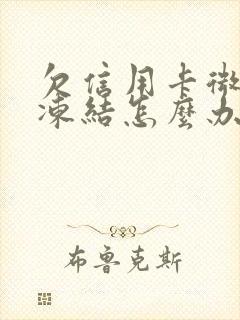 欠信用卡微
凍結怎麼办
布魯克斯